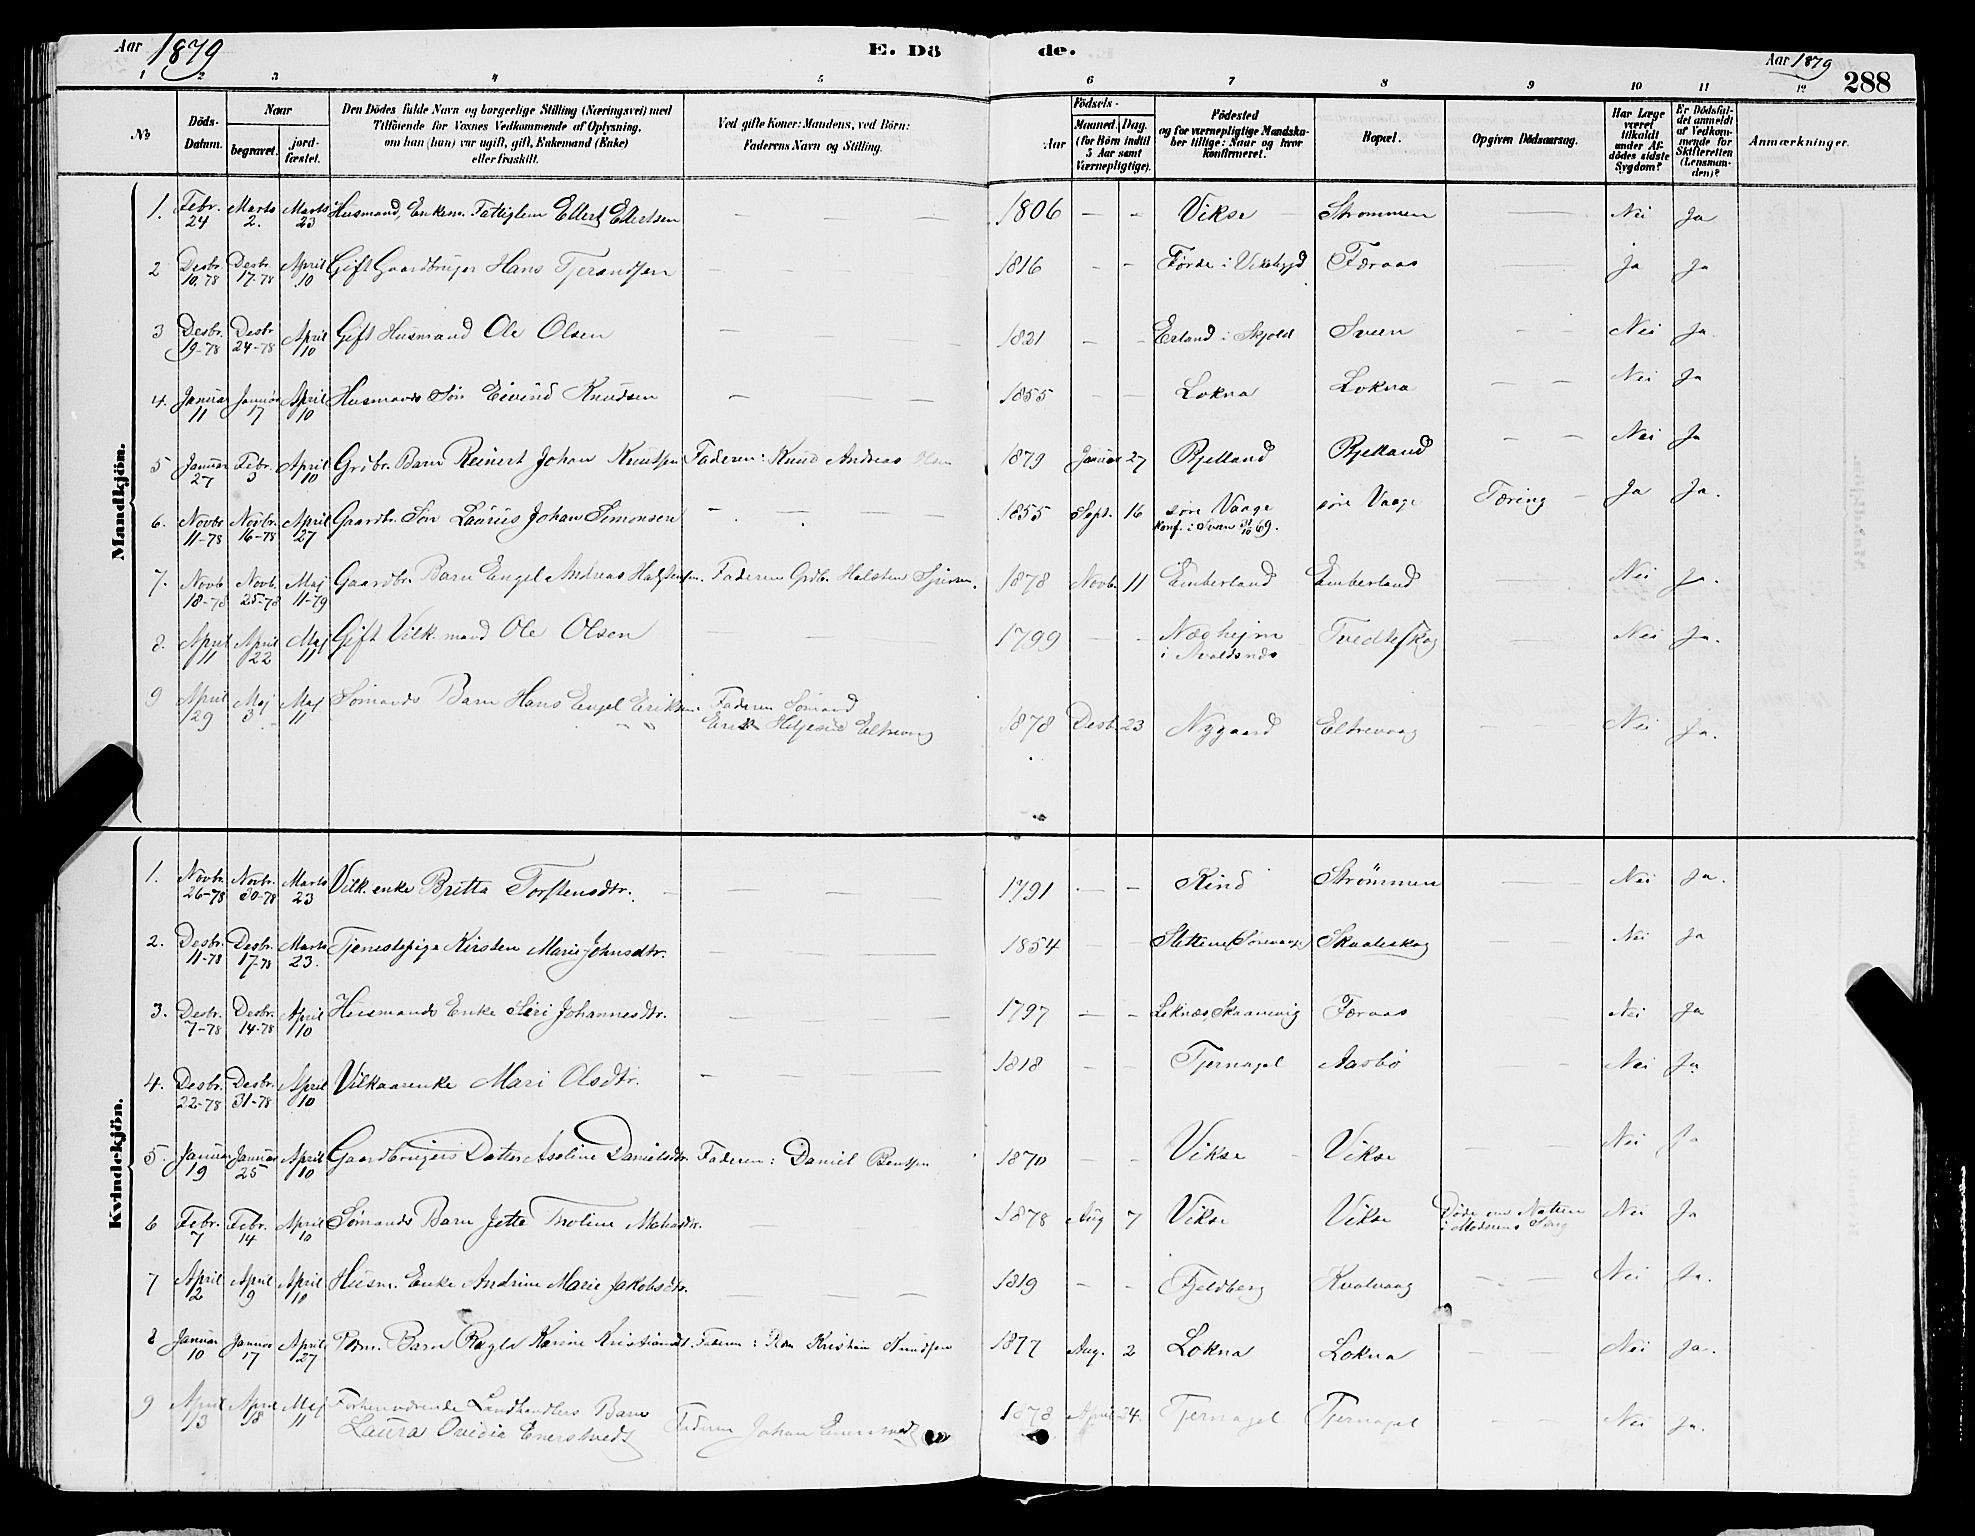 Aar 1879 E. Dö de. Aar 1879 288
1 2 3 4 5 6 7 8 9 10 11 12
No Döds-Datum. Naar begravet. jordfæstet. Den Dödes fulde Navn og borgerlige Stilling (Næringsvei) med Tilföiende for Voxnes Vedkommende af Oplysning, om han (hun) var ugift, gift, Enkemand (Enke) eller fraskilt. Ved gifte Koner: Mandens, ved Börn: Faderens Navn og Stilling. Födsels- Aar Maaned. Dag. (for Börn indtil 5 Aar samt Værnepligtige). Födested og for værnepligtige Mandskaber tillige: Naar og hvor konfirmeret. Bopæl. Opgiven Dödsaarsag. Har Læge været tilkaldt under Afdödes sidste Sygdom? Er Dödsfaldet anmeldt af Vedkommende for Skifteretten (Lensmanden)? Anmærkninger.
Mandkjön.
1. Febr. 24 Marts 2. Marts 23 Husmand, Enkem. Fattiglem Ellert Ellertsen — — — 1806 — — Vikse Strømmen — Nei Ja
2 Desbr. 10-78 Desbr. 17-78 April 10 Gift Gaardbruger Hans Tjerandsen — — — 1816 — — Førde i Vikebygd Færaas — Ja Ja
3 Desbr. 19-78 Desbr 24-78 April 10 Gift Husmand Ole Olsen — — — 1821 — — Erland i Skjold Sveen — — Nei Ja.
4. Januar 11 Januar 17 April 10 Husmands Søn Eivind Knudsen — — — — 1855 — — Lokna Lokna — — Nei Ja
5 Januar 27 Febr. 3 April 10 Grdbr. Barn Reinert Johan Knutsen Faderen: Knud Andreas Olsen 1879 Januar 27 Bjelland Bjelland — — Nei Ja
6. Novbr 11-78 Novbr. 16-78 April 27 Gaardbr. Søn Laurus Johan Simonsen — — — — 1855 Sept. 16 søre Vaage Konf. i Sveen 69. søre Vaage Tæring — Ja Ja.
7. Novb 18-78 Novb. 25-78 Maj 11-79 Gaardbr. Barn Engel Andreas Halstensen. Faderen Grdb. Halsten 1878 Novb. 11 Emberland Emberland — Nei Ja.
8. April 11 April 22 Maj 11 Gift Vilk. mand Ole Olsen — — — 1799 — — i Avaldsnes Tvedteskog — — Nei Ja.
9 April 29 Maj 3 Maj 11 Sømands Barn Hans Engel Eriksen. Faderen Sømand
Erik Eltrevaag 1878 Desb. 23 Nygaard Eltrevaag — — Nei Ja.
Kvindekjön.
1. Novbr. 26-78 Novbr. 30-78 Marts 23 Vilk. enke Britta Torstensdtr. — — — — 1791 — — Rind Strømmen — Nei Ja.
2. Desbr. 11-78 Desbr. 17-78 Marts 23. Tjenestepige Kirsten Marie Johnsdtr. — — — — 1854 — — Skaaleskog — Nei Ja
3. Desbr. 7-78 Desbr. 14-78 April 10 Husmands Enke Siri Johannesdtr. — — — — 1797 — — Leknæs, Skaanevig Færaas — Nei Ja
4. Desbr. 22-78 Desbr. 31-78 April 10 Vilkaarenke Mari Olsdtr. — — — — 1818 — — Tjernagel Aasbø — — Nei Ja
5. Januar 19 Januar 25 April 10 Gaardbrugers Datter Aseline Danielsdtr. Faderen: Daniel Bentsen 1870 — — Vikse Vikse — Nei Ja
6 Febr. 7 Febr. 14 April 10 Sømands Barn Jette Troline — 1878 Aug 7 Vikse Vikse Døde om Natten i Moderens Nei Ja
7 April 2 April 9 April 10 Husm. Enke Andrine Marie Jakobsdtr. — — — — 1819 — — Fjeldberg Kvalvaag — — Nei Ja.
8 Januar 10 Januar 17 April 27 Barn Karine Faderen: Kristian Knudsen 1877 Aug. 2 Lokna Lokna — — Nei Ja.
9 April 13 April 18 Maj 11 Forhenværende Landhandlers Barn
Laura Ovidia Enerstvedt Faderen Johan Enerstvedt 1878 April 24. Tjernagel Tjernagel — — Nei Ja.